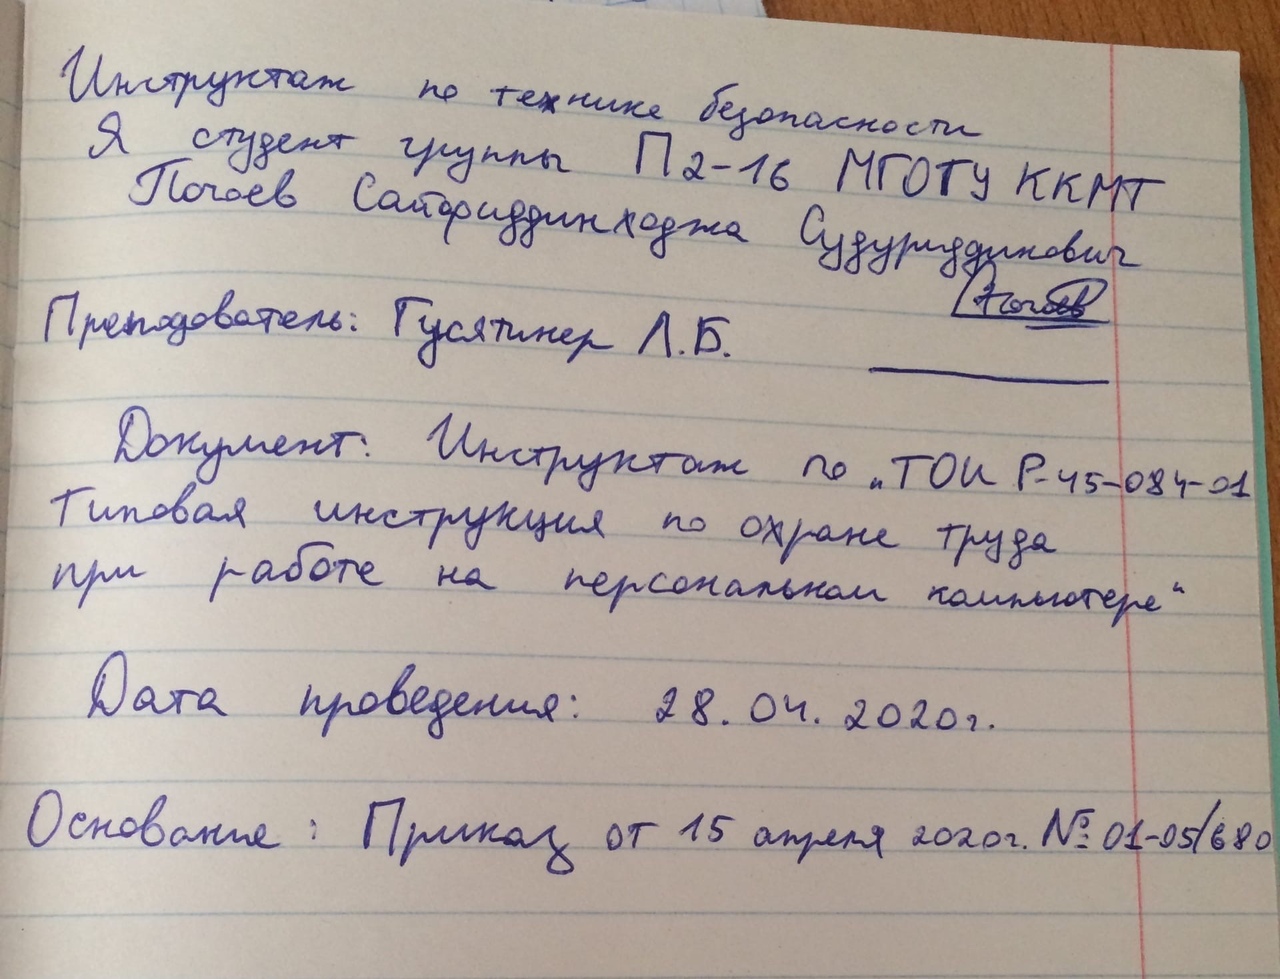 Инструктаж по технике безопасности
Я студент группы П2-16 МГОТУ ККМТ
Погоев Сайфриддинходжа Судуриддинович
Погоев
Преподаватель: Гусятинер Л.Б.
Документ: Инструктаж по „ТОИ Р-45-084-01
Типовая инструкция по охране труда
при работе на персональном компьютере“
Дата проведения: 28.04.2020г.
Основание: Приказ от 15 апреля 2020г. № 01-05/680